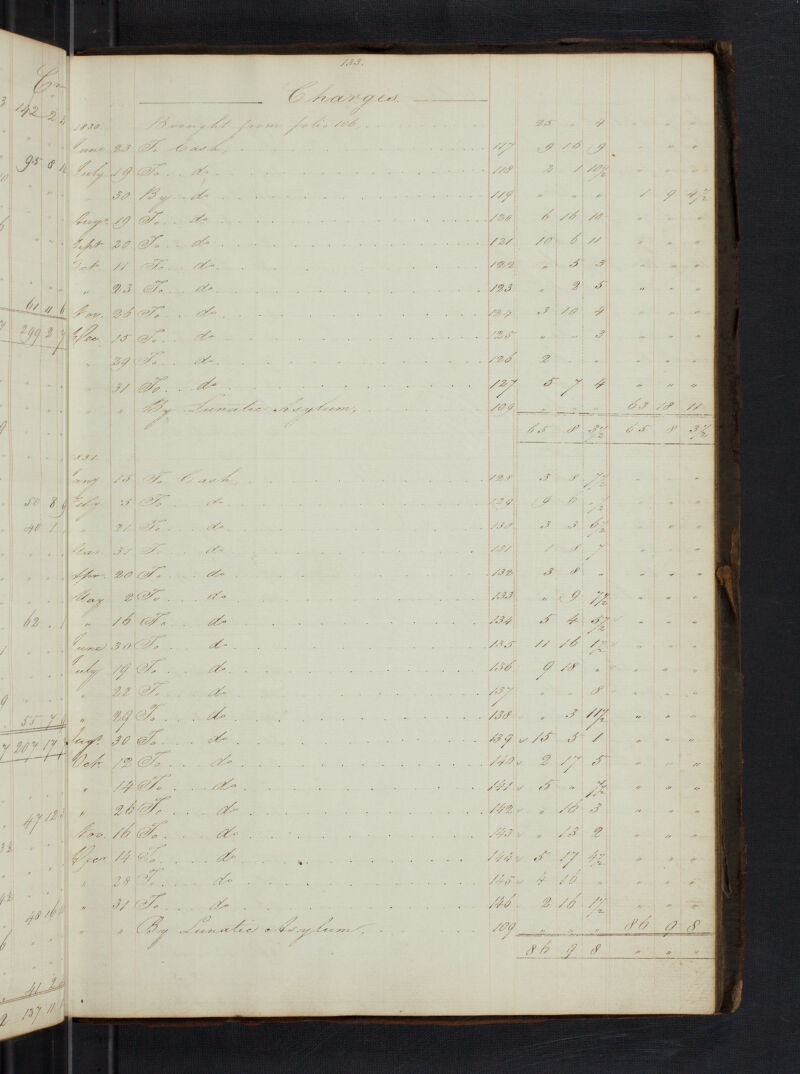 133.
Charges.
1830. Brought from folio 106. 25 " 4
June 23 To Cash 117 9 16 9
July 19 To do 118 2 1 10½
" 30 By do 119 " " " 1 9 4½
Augt 19 To do 120 6 16 10
Sept 20 To do 121 10 6 11
Oct. 11 To do 122 " 5 3
" 23 To do 123 " 2 5 " " "
Nov. 26 To do 124 3 10 4
Decr 15 To do 125 " " 3
" 29 To do 126 2
" 31 To do 127 5 7 4 " " "
" " By Lunatic Asylum, 109 " " " 63 18 11
65 8 3½ 65 8 3½
1831.
Jany 15 To Cash 128 3 8 7½
Feby 5 To do 129 9 6 " ½
" 21 To do 130 3 3 6½
Mar 31 To do 131 1 8 7
Apr. 20 To do 132 3 8 "
May 2 To do 133 " 9 7½
" 16 To do 134 5 4 5½
June 30 To do 135 11 16 1½
July 19 To do 136 9 18 "
" 22 To do 137 " " 8
" 29 To do 138 " 3 11½ " " "
Augt 30 To do 139 15 5 1 " " "
Oct. 12 To do 140 2 17 5 " " "
" 14 To do 141 5 " 7½ " " "
" 26 To do 142 " 16 3 " " "
Nov. 16 To do 143 " 13 2 " " "
Decr 14 To do 144 5 17 4½ " " "
" 28 To do 145 4 16 " " " "
" 31 To do 146 2 16 1½ " " "
" " By Lunatic Asylum, 109 " " " 86 9 8
86 9 8 " " "
Cr
142 2
95 8
61 11 6
299 2 7
50 8 9
40 1
62 . 1
55 7
207 17
47 12
40 16
41 2
137 11